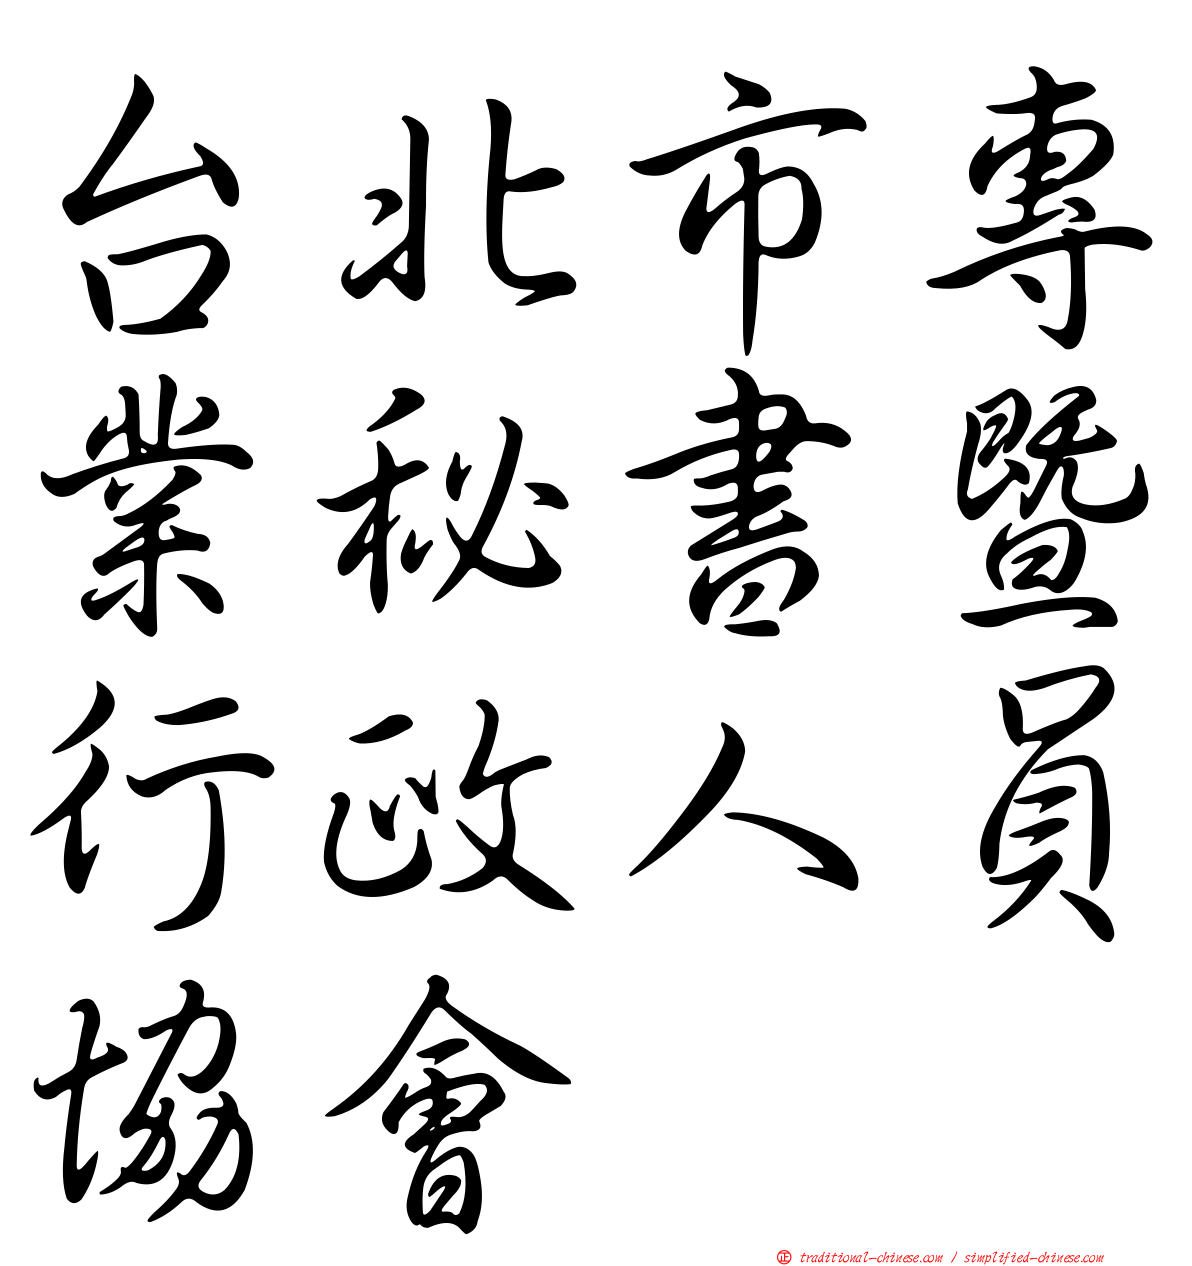 台北市專
業秘書暨
行政人員
協會
㊣ traditional-chinese.com / simplified-chinese.com